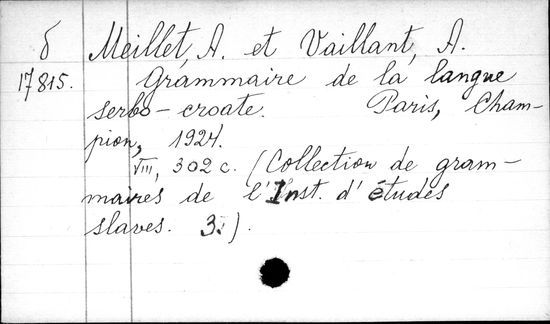 б Meillet, A. et Vaillant, A.
17815. Grammaire de la langue
serbo-croate. Paris, Cham-
pion, 1924.
VIII, 302 c. (Collection de gram-
maires de l'Inst. d'études
slaves. 3.).